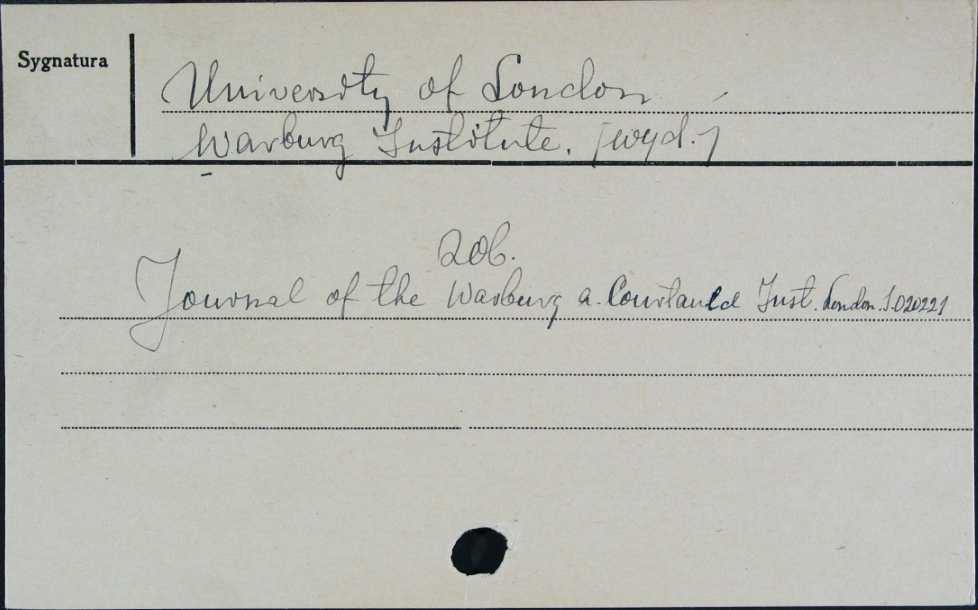 Sygnatura
University of London
Warburg Institute. [wyd.]
Zob.
Journal of the Warburg a. Courtauld Inst. London. J.020221